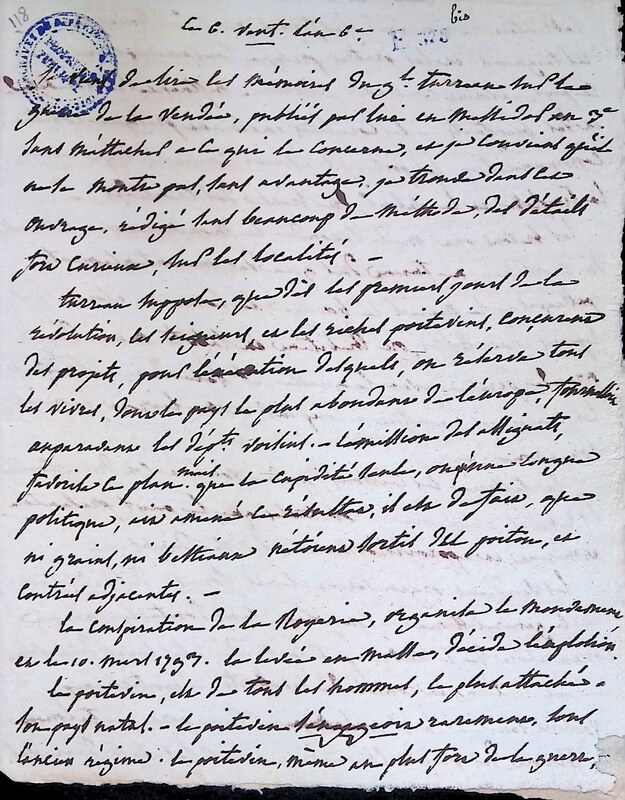 118
le 6. vent. l'an 6e
E 378 bis
de lire les mémoires du gl. turreau sur la
guerre de la vendée, publiés par lui en
sans m'attacher a ce que le concerne, et je conviens qu'il
ne se montre pas, sans avantage, je trouve dans cet
ouvrage, rédigé sans beaucoup de méthode, des détails
fort curieux, sur les localités –
turreau suppose, que dès les premiers jours de la
révolution, les seigneurs, et les riches poitevins, conçurent
des projets, pour l'exécution desquels, on réserva tous
les vivres, dont le pays le plus abondant de l'europe,
auparavant les dépts. voisins. – l'émission des assignats,
favorisa ce plan. mais que la cupidité seule, ou qu'une longue
politique, ait amené ce résultat, il est de fait, que
ni grains, ni bestiaux n'étoient sortis du poitou, et
contrées adjacentes. –
la conspiration de la Royerie, organisa le mouvement
et le 10. mars 1793. la levée en masse, décida l'explosion.
le poitevin, est de tous les hommes, le plus attaché a
son pays natal. – le poitevin rarement, sous
l'ancien régime. le poitevin, même au plus fort de la guerre,